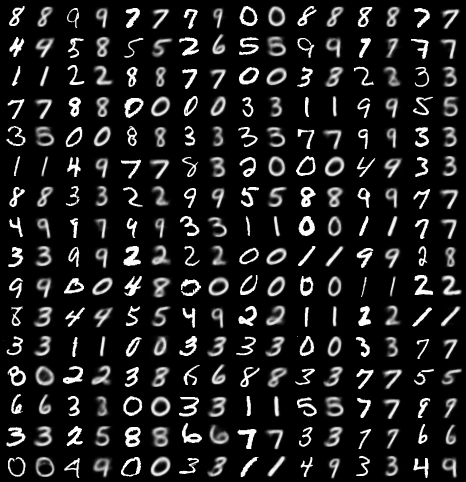 8 8 9 9 7 7 7 9 0 0 8 8 8 8 7 7
4 9 5 8 5 5 2 6 5 5 9 9 7 7 7 7
1 1 2 2 8 8 7 7 0 0 3 8 2 2 3 3
7 7 8 8 0 0 0 0 3 3 1 1 9 9 5 5
3 5 0 0 8 8 3 3 3 5 7 7 9 9 3 3
1 1 4 9 7 7 8 3 2 0 0 0 4 9 3 3
8 8 3 3 2 2 9 9 5 5 8 8 9 9 7 7
4 9 9 7 9 9 3 3 1 1 0 0 1 1 7 7
3 3 9 9 2 2 2 2 0 0 1 1 9 9 2 8
9 9 0 0 4 8 0 0 0 0 0 0 1 1 2 2
8 3 4 4 5 5 4 9 2 2 1 1 2 2 1 1
3 3 1 1 0 0 3 3 3 3 0 0 3 3 7 7
8 0 2 2 3 8 6 6 8 8 3 3 7 7 5 5
6 6 3 3 0 0 3 3 1 1 5 5 7 7 9 9
3 3 2 5 8 8 6 6 7 7 3 3 7 7 6 6
0 0 4 9 0 0 3 3 1 1 4 9 3 3 4 9